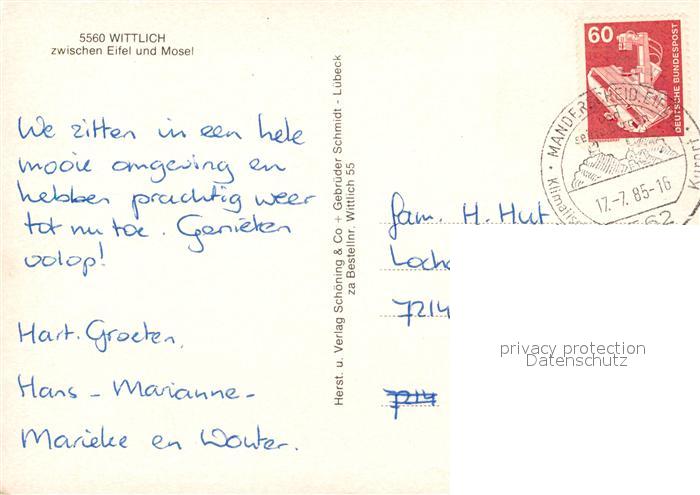 5560 WITTLICH
zwischen Eifel und Mosel
We zitten in een hele
mooie omgeving en
hebben prachtig weer
tot nu toe. Genieten
volop!
Hart. Groeten,
Hans - Marianne -
Marieke en Wouter.
Herst. u. Verlag Schöning & Co + Gebrüder Schmidt - Lübeck
za Bestellnr. Wittlich 55
60
DEUTSCHE BUNDESPOST
MANDERSCHEID, EIFEL
17.-7. 85-16
Kurort
562
fam. H. Hut
7214
7214
privacy protection
Datenschutz